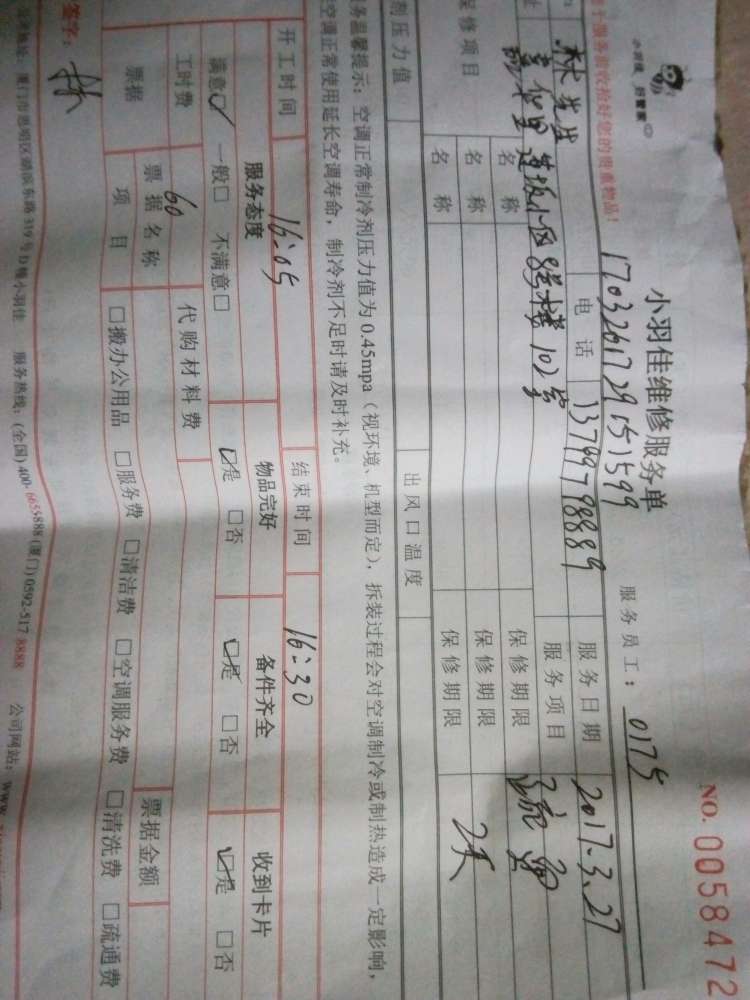 小羽佳 好管家
小羽佳维修服务单
NO. 0058472
个服务前收拾好您的贵重物品!
17032617291151599
服务员工: 0175
林先生
电话
13799798889
服务日期
2017.3.27
址
莲坂小区8号楼102室
服务项目
保修项目
名称
保修期限
名称
保修期限
2天
名称
保修期限
剂压力值
出风口温度
务温馨提示: 空调正常制冷剂压力值为 0.45mpa (视环境、机型而定), 拆装过程会对空调制冷或制热造成一定影响,
空调正常使用延长空调寿命, 制冷剂不足时请及时补充。
开工时间
16:05
结束时间
16:30
服务态度
物品完好
备件齐全
收到卡片
满意☑ 一般□ 不满意□
☑是 □否
☑是 □否
☑是 □否
工时费
60
代购材料费
票据
票据名称
票据金额
项目
□搬办公用品 □服务费 □清洁费 □空调服务费 □清洗费 □疏通费
签字: 林
厦门市思明区湖滨东路 319 号 D 幢小羽佳 服务热线: (全国) 400-6655888 (厦门) 0592-517 8888 公司网站: www.